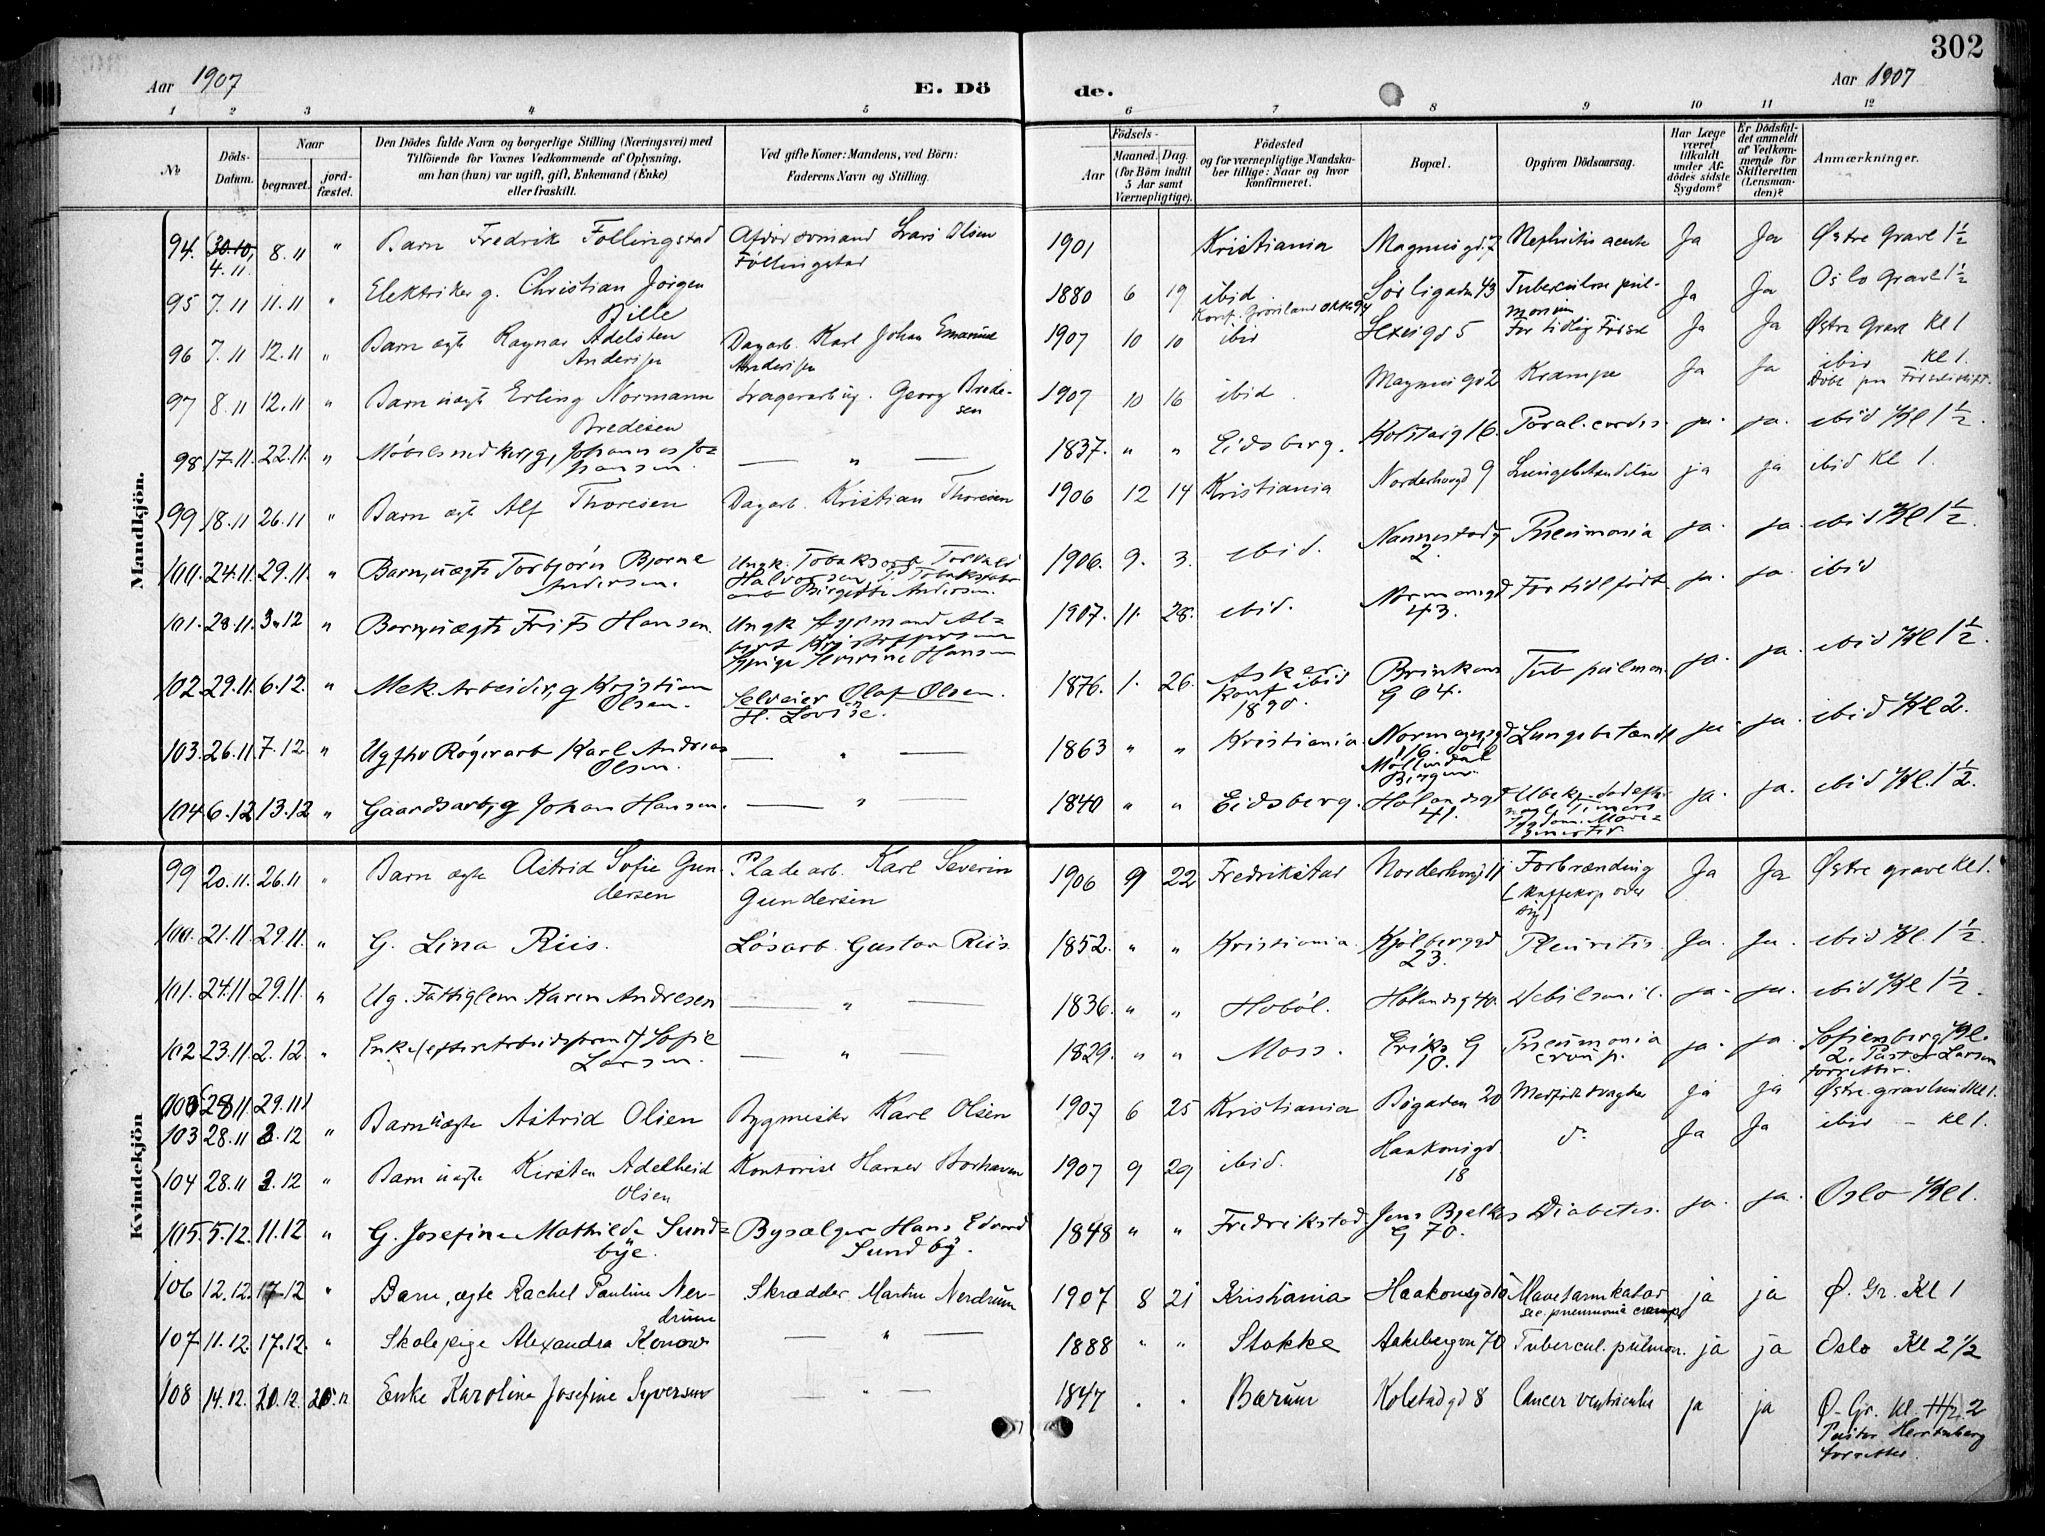 302
Aar 1907
E. Dö
de.
Aar 1907
1 2 3 4 5 6 7 8 9 10 11 12
No
Döds-Datum.
Naar
begravet.
jord-fæstet.
Den Dödes fulde Navn og borgerlige Stilling (Næringsvei) med
Tilföiende for Voxnes Vedkommende af Oplysning,
om han (hun) var ugift, gift, Enkemand (Enke)
eller fraskilt.
Ved gifte Koner: Mandens, ved Börn:
Faderens Navn og Stilling.
Födsels-
Aar
Maaned. Dag.
(for Börn indtil
5 Aar samt
Værnepligtige).
Födested
og for værnepligtige Mandska-
ber tillige: Naar og hvor
konfirmeret.
Bopæl.
Opgiven Dödsaarsag.
Har Læge
været
tilkaldt
under Af-
dödes sidste
Sygdom?
Er Dödsfal-
det anmeldt
af Vedkom-
mende for
Skifteretten
(Lensman-
den)?
Anmærkninger.
Mandkjön.
94. 30.10, 4.11 8.11 " Barn Fredrik Föllingstad Lars Olsen Föllingstad 1901 Kristiania Magnusgd 7 Nephritis acuta Ja Ja Östre Grave 1½
95 7.11 11.11 " Elektriker g. Christian Jörgen Bille 1880 6 19 ibid Konf. Grönland Sörligaden 43 Tuberculose pulmonum Ja Ja Oslo Grave 1½
96 7.11 12.11 " Barn ægte Ragnar Adelsten Andersen Dagarb. Karl Johan Andersen 1907 10 10 ibid 5 For tidlig Födsel Ja Ja Östre Grave Kl 1
97 8.11 12.11 " Barn uægte Erling Normann Bredesen Georg Bredesen 1907 10 16 ibid. Magnusgd 2 Krampe Ja Ja ibid Kl 1.
98 17.11. 22.11. " Möbelsnedker, g, Johannes Johansen. — " — 1837. " " Eidsberg. Kolstadg 16. Paral. cordis. ja. ja. ibid Kl 1½.
99 18.11 26.11 " Barn ægte Alf Thoresen Dagarb. Kristian Thoresen 1906 12 14 Kristiania Norderhovgd 9 Lungebetændelse ja ja ibid Kl 1.
100. 24.11. 29.11. " Barn, uægte Torbjörn Bjarne Andersen. Ungk. Torvald Halvorsen Birgitte Andersen. 1906. 9. 3. ibid. Nannestadg 2. Pneumonia ja. ja. ibid Kl 1½.
101. 28.11. 3.12 " Barn, uægte Frits Hansen. Ungk Albert Kristoffersen Pige Severine Hansen 1907. 11. 28. ibid. Normannsgd 43. For tidl. födt. ja. ja. ibid
102. 29.11. 6.12. " Mek Arbeider, g Kristian Olsen. Selveier Olaf Olsen. H. Lovise. 1876. 1. 26. Asker konf ibid 1890. Brinkens G 64. Tub pulmon. ja. ja. ibid Kl 1½.
103. 26.11. 7.12 " Karl Andreas Olsen. — " — 1863 " " Kristiania. Normannsgd 116. Lungebetænd. ja. ja. ibid Kl 2.
104 6.12 13.12 " Gaardsarb, g Johan Hansen. — " — 1840 " " Eidsberg. Hölandsgd 41. ja. ja. ibid Kl. 1½.
Kvindekjön
99 20.11. 26.11 " Barn ægte Astrid Sofie Gundersen Pladearb. Karl Severin Gundersen 1906 9 22 Fredrikstad Norderhovgd 11 Forbrænding (Kaffekop over sig) Ja Ja Östre grave Kl 1.
100. 21.11. 29.11. " G. Lina Riis. Lösarb. Gustav Riis 1852. " " Kristiania. Kjölberggd 23. Pleuritis. Ja. Ja. ibid Kl. 1½.
101. 24.11 29.11. " Ug. Fattiglem Karen Andresen — " — 1836. " " Hoböl. Hölandsg 40. Debil. senil. ja. ja. ibid Kl 1½.
102. 23.11. 2.12 " Enke efter Arbeidsform. Sofie Larsen. — " — 1829. " " Moss. Eriks G 10. Pneumonia croup. ja. ja. Sofienberg Kl. 2. Pastor Larsen forretter.
103 28.11. 29.11
103 28.11 3.12 " Barn uægte Astrid Olsen Bygmester Karl Olsen 1907 6 25 Kristiania Bögaden 20 Medfödt svaghed ja ja Östre gravlund kl 1.
104 28.11 3.12 " Barn uægte Kirsten Adelheid Olsen Kontorist 1907 9 29 ibid. Haakonsgd. 18 do Ja Ja ibid — kl 1.
105. 5.12. 11.12 " G. Josefine Mathilde Sundbye. Bysælger Hans Edvard Sundby. 1848 " " Fredrikstad Jens Bjelkes G 70. Diabetes. ja. ja. Oslo Kl 1.
106 12.12. 17.12 " Barn, ægte Rachel Pauline Nerdrum Skrædder Martin Nerdrum 1907 8 21 Kristiania Haakonsgd Mavetarmkatar ja ja Ö. Gr. Kl 1
107. 11.12. 17.12. " Skolepige Alexandra Konow — " — 1888 " " Stokke Aakebergvn 70 Tubercul. pulmon. ja ja Oslo Kl 2½
108 14.12. 20.12. 20.12 Enke Karoline Josefine Syversen — " — 1847 " " Bærum Kolstadgd 8 Cancer ventriculi ja ja Ö. Gr. Kl. 2 Pastor forretter.